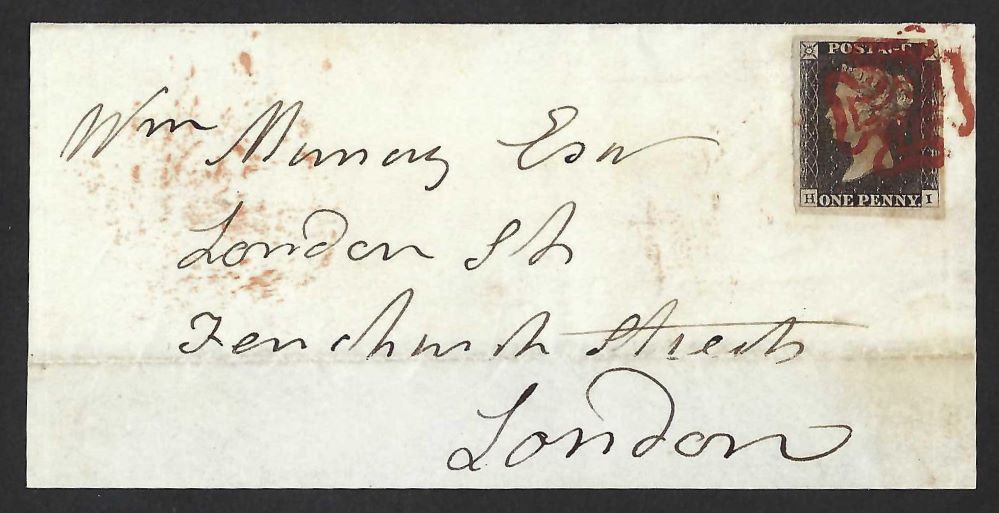 POSTAGE
H ONE PENNY I
Wm Murray Esqr
London St
Fenchurch Street
London